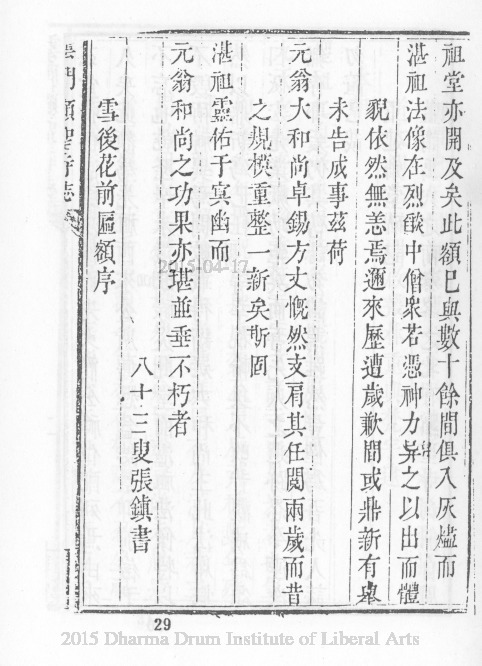 祖堂亦開及矣此額已與數十餘間俱入灰燼而
湛祖法像在烈燄中僧衆若憑神力舁之以出而體
貌依然無恙焉邇來歷遭歲歉間或鼎新有舉
未告成事茲荷
元翁大和尚卓錫方丈慨然支肩其任閱兩歲而昔
之規模重整一新矣斯固
湛祖靈佑于冥幽而
元翁和尚之功果亦堪並垂不朽者
八十三叟張鎮書
雪後花前匾額序
雲門顯聖寺志
29
2015-04-17
2015 Dharma Drum Institute of Liberal Arts